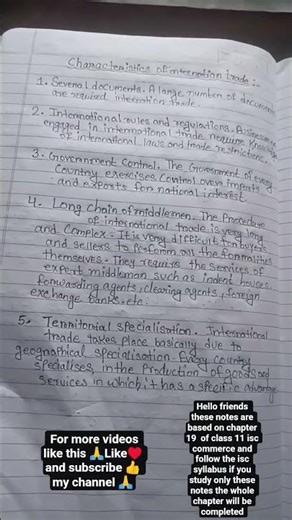 Characteristics of internation trade :-
1. Several documents. A large number of documents
are required internation trade.
2. International rules and regulations. A
engaged in international trade require knowledge
of international laws and trade restrictions.
3. Government Control. The Government of every
Country exercises Control over imports
and exports for national interest
4. Long chain of middlemen. The Procedure
of international trade is very long
and Complex. It is very difficult for buyers
and sellers to perform all the formalities
themselves. They require the services of
expert middleman such as indent houses,
forwarding agents, clearing agents, foreign
exchange banks. etc.
5. Territorial specialisation. International
trade takes place basically due to
geographical specialisation. Every country
specialises, in the production of goods and
services in which it has a specific advantage
For more videos
like this 🙏Like❤️
and subscribe 👍
my channel 🙏
Hello friends
these notes are
based on chapter
19 of class 11 isc
commerce and
follow the isc
syllabus if you
study only these
notes the whole
chapter will be
completed